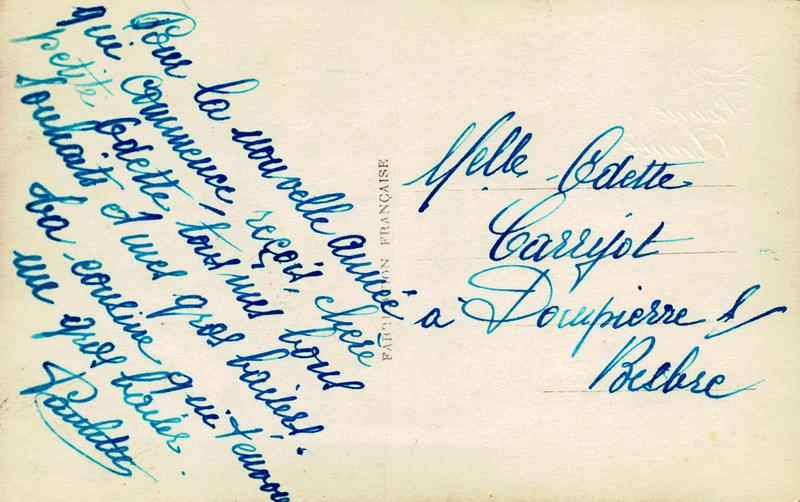 Pour la nouvelle année
qui commence, reçois, chère
petite Odette, tous mes bons
souhaits et mes gros baisers.
Ta cousine qui t'envoie
un gros baiser.
Paulette
FABRICATION FRANÇAISE
Melle Odette
Carrijot
à Dompierre s/
Besbre
Bonne
Année